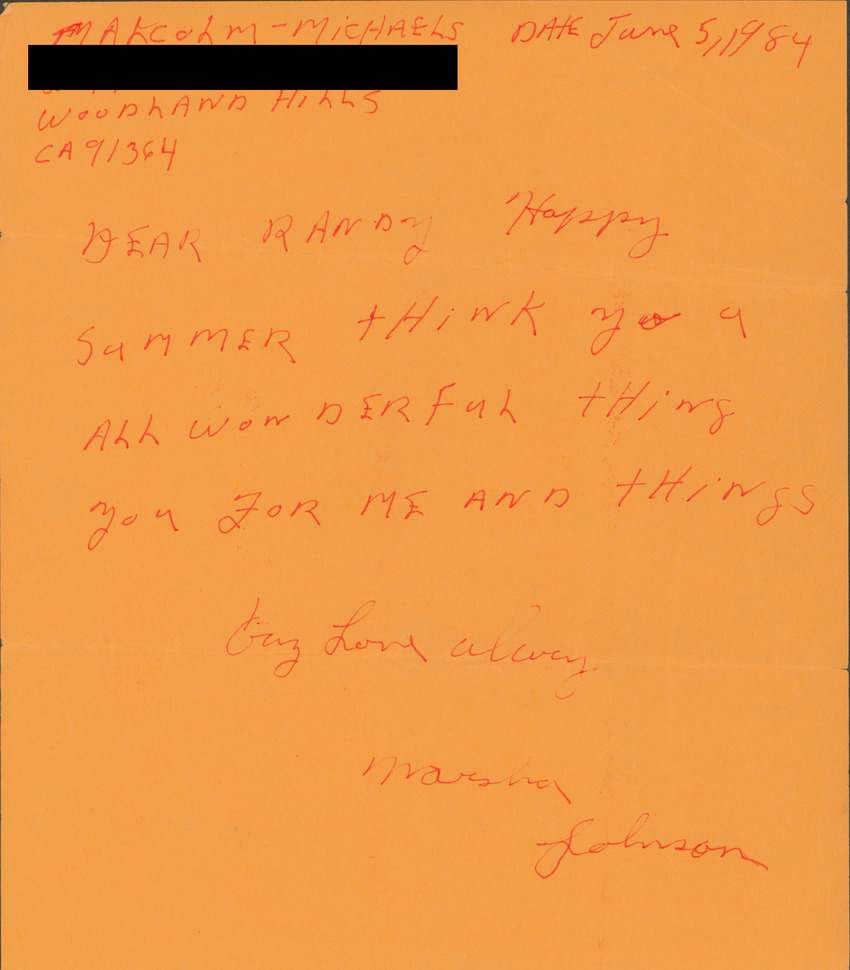 MALCOLM-MICHAELS DATE June 5, 1984
WOODLAND HILLS
CA 91364
DEAR RANDY Happy
SUMMER tHiNK you
ALL WONDERFUL tHING
you FOR ME AND tHiNGS
Love alway
Marsha
Johnson